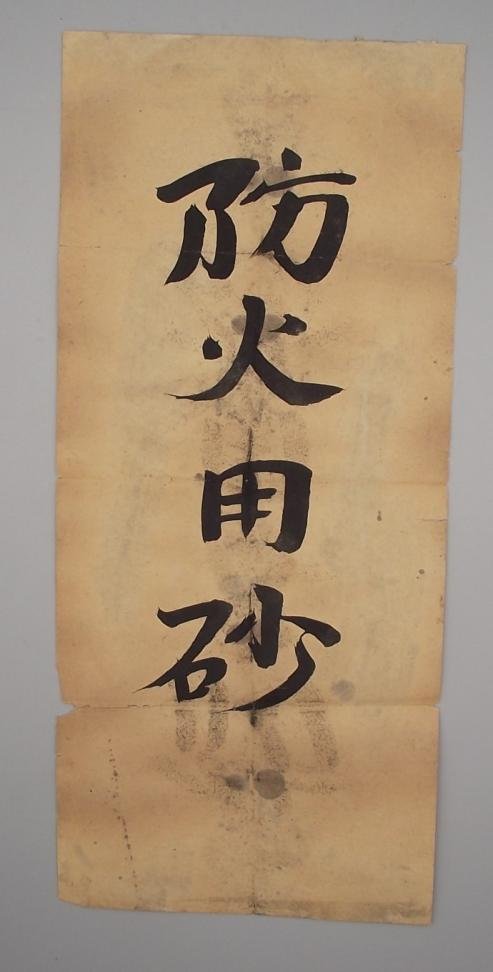 防火用砂